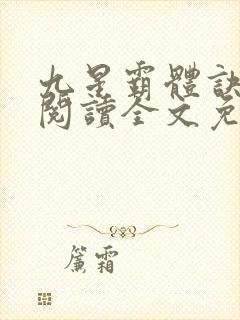 九星霸體訣
閱讀全文免
簾霜